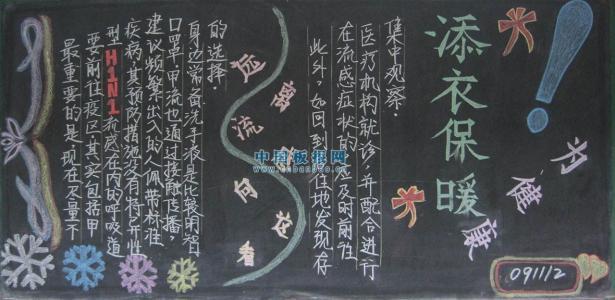 最重要的是现在尽量不
要前往疫区其实包括甲
型H1N1流感在内的呼吸道
疾病,其预防措施没有特异性
建议频繁出入的人佩带标准
口罩.甲流也通过接触传播,
身边常备洗手液是比较明智
的选择.
远离流
向
看
此外,如回到居住地发现存
在流感症状的,应及时前往
医疗机构就诊,并配合进行
集中观察.
添衣保暖
!
为健康
091112
中国板报网